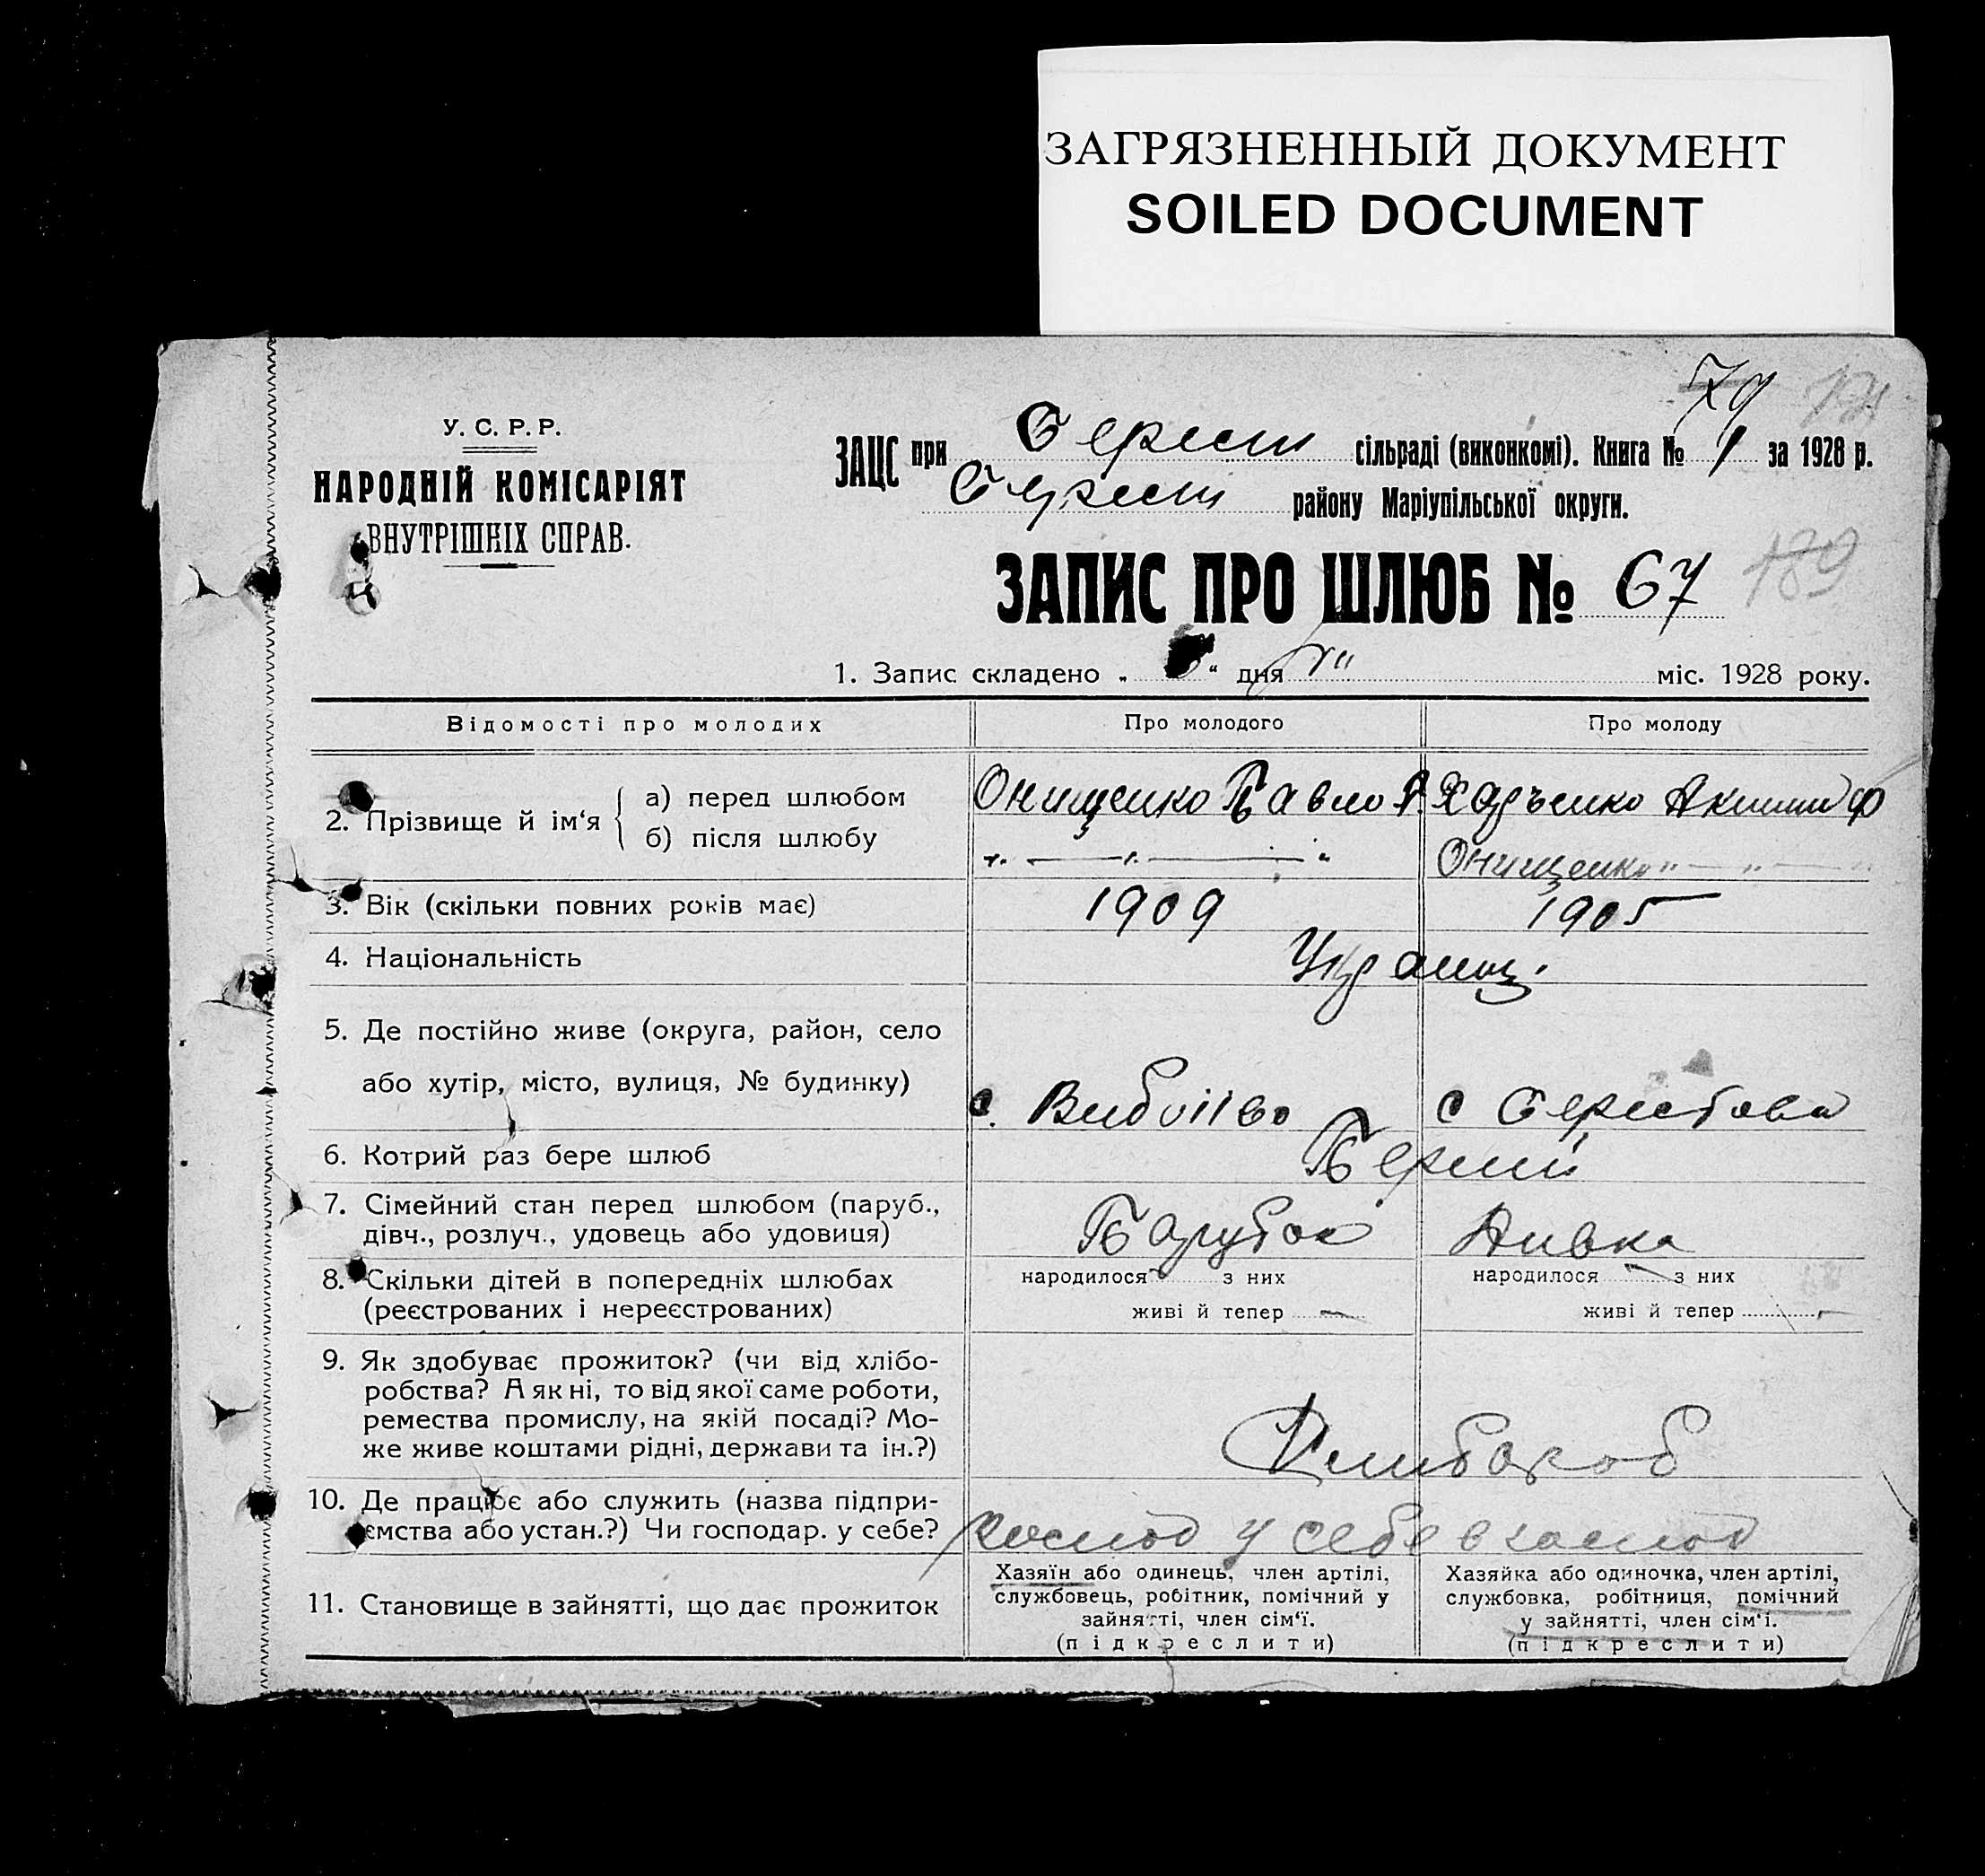 ЗАГРЯЗНЕННЫЙ ДОКУМЕНТ
SOILED DOCUMENT
79
У. С. Р. Р.
НАРОДНІЙ КОМІСАРІЯТ
ВНУТРІШНІХ СПРАВ.
ЗАЦС при Берест сільраді (виконкомі). Книга № 1 за 1928 р.
Берест району Маріупільської округи.
189
ЗАПИС ПРО ШЛЮБ № 67
1. Запис складено „ “ дня міс. 1928 року.
Відомості про молодих Про молодого Про молоду
2. Прізвище й ім‘я
а) перед шлюбом Онищенко Павло Харченко
б) після шлюбу „ — „ — „ Онищенко „ — „ —
3. Вік (скільки повних років має) 1909 1905
4. Національність Украинц.
5. Де постійно живе (округа, район, село
або хутір, місто, вулиця, № будинку) с. с Берестова
6. Котрий раз бере шлюб Перший
7. Сімейний стан перед шлюбом (паруб.,
дівч., розлуч., удовець або удовиця) Парубок Дивка
8. Скільки дітей в попередніх шлюбах народилося — з них народилося — з них
(реєстрованих і нереєстрованих) живі й тепер — живі й тепер —
9. Як здобуває прожиток? (чи від хлібо-
робства? А як ні, то від якої саме роботи,
ремества промислу, на якій посаді? Мо-
же живе коштами рідні, держави та ін.?) Хлибороб
10. Де працює або служить (назва підпри-
ємства або устан.?) Чи господар. у себе? господ у себе в господ
11. Становище в зайнятті, що дає прожиток
Хазяїн або одинець, член артілі,
службовець, робітник, помічний у
зайнятті, член сім‘ї.
(підкреслити)
Хазяйка або одиночка, член артілі,
службовка, робітниця, помічний
у зайнятті, член сім‘ї.
(підкреслити)